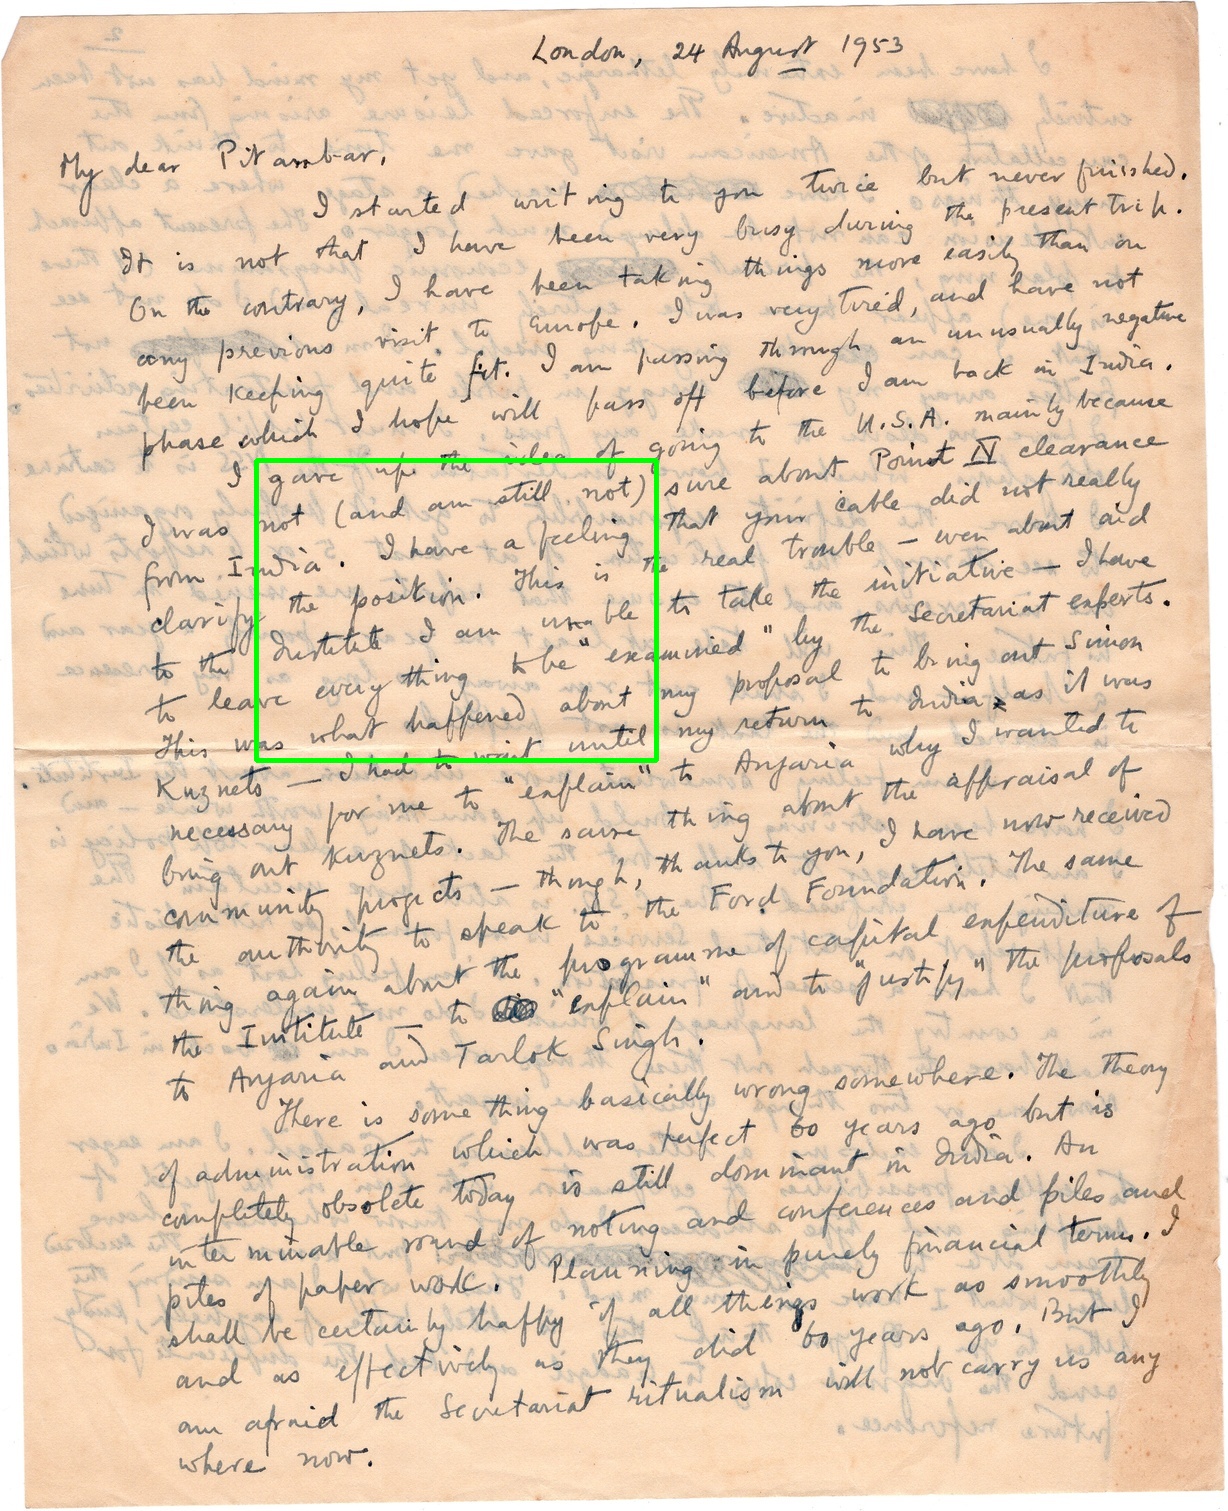 London, 24 August 1953
My dear Pitambar,
I started writing to you twice but never finished.
It is not that I have been very busy during the present trip.
On the contrary, I have been taking things more easily than on
any previous visit to Europe. I was very tired, and have not
been keeping quite fit. I am passing through an unusually negative
phase which I hope will pass off before I am back in India.
I gave up the idea of going to the U.S.A. mainly because
I was not (and am still not) sure about Point IV clearance
from India. I have a feeling that your cable did not really
clarify the position. This is the real trouble — even about aid
to the Institute I am unable to take the initiative — I have
to leave every thing to be "examined" by the Secretariat experts.
This was what happened about my proposal to bring out Simon
Kuznets — I had to wait until my return to India, as it was
necessary for me to "explain" to Anjaria why I wanted to
bring out Kuznets. The same thing about the appraisal of
community projects — though, thanks to you, I have now received
the authority to speak to the Ford Foundation. The same
thing again about the programme of capital expenditure of
the Institute — to "explain" and to "justify" the proposals
to Anjaria and Tarlok Singh.
There is some thing basically wrong somewhere. The theory
of administration which was perfect 60 years ago but is
completely obsolete today is still dominant in India. An
interminable round of noting and conferences and piles and
piles of paper work. Planning in purely financial terms. I
shall be certainly happy if all things work as smoothly
and as effectively as they did 60 years ago. But I
am afraid the Secretariat ritualism will not carry us any
where now.